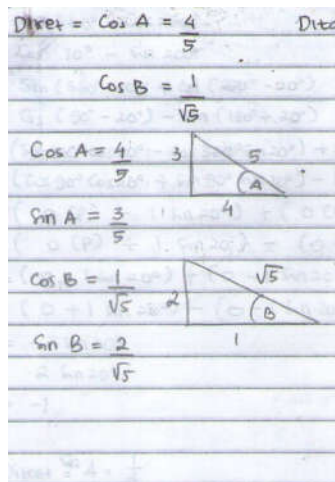 Diket = Cos A = 4/5 Dita
Cos B = 1/√5
Cos A = 4/5
3 5 A 4
Sin A = 3/5
Cos B = 1/√5
2 √5 B 1
Sin B = 2/√5